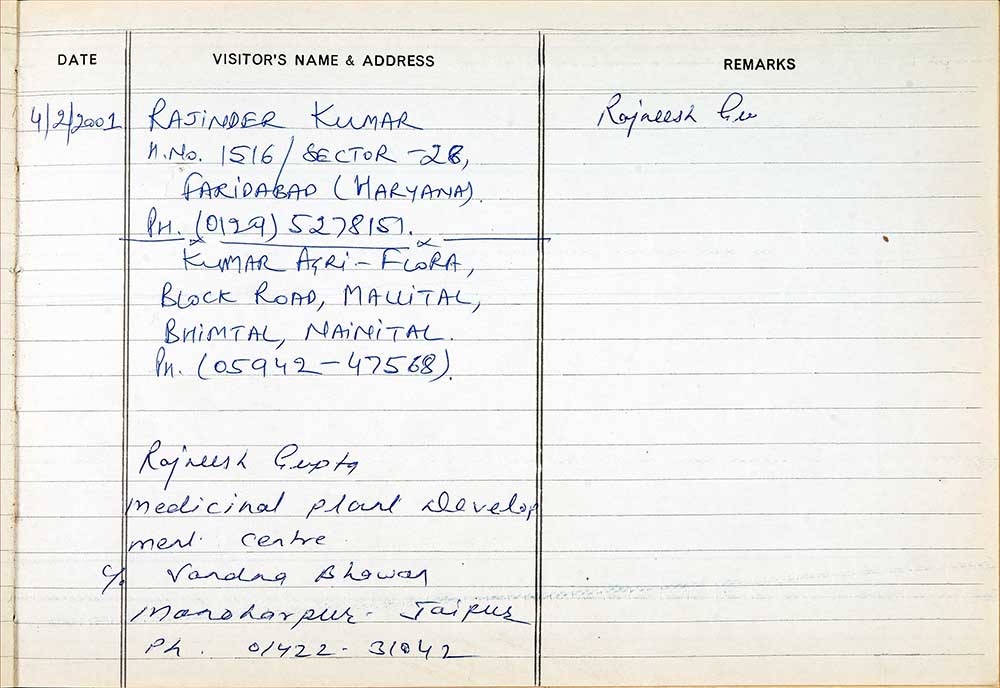 DATE
VISITOR'S NAME & ADDRESS
REMARKS
4/2/2001
RAJINDER KUMAR
H.No. 1516/SECTOR-28,
FARIDABAD (HARYANA).
PH. (0129) 5278151.
KUMAR AGRI-FLORA,
BLOCK ROAD, MALLITAL,
BHIMTAL, NAINITAL.
PH. (05942-47568).
Rajneesh Gupta
Medicinal plant Develop
ment centre
c/o Vandna Bhawan
Manoharpur - Jaipur
Ph. 01422-31042
Rajneesh Gu